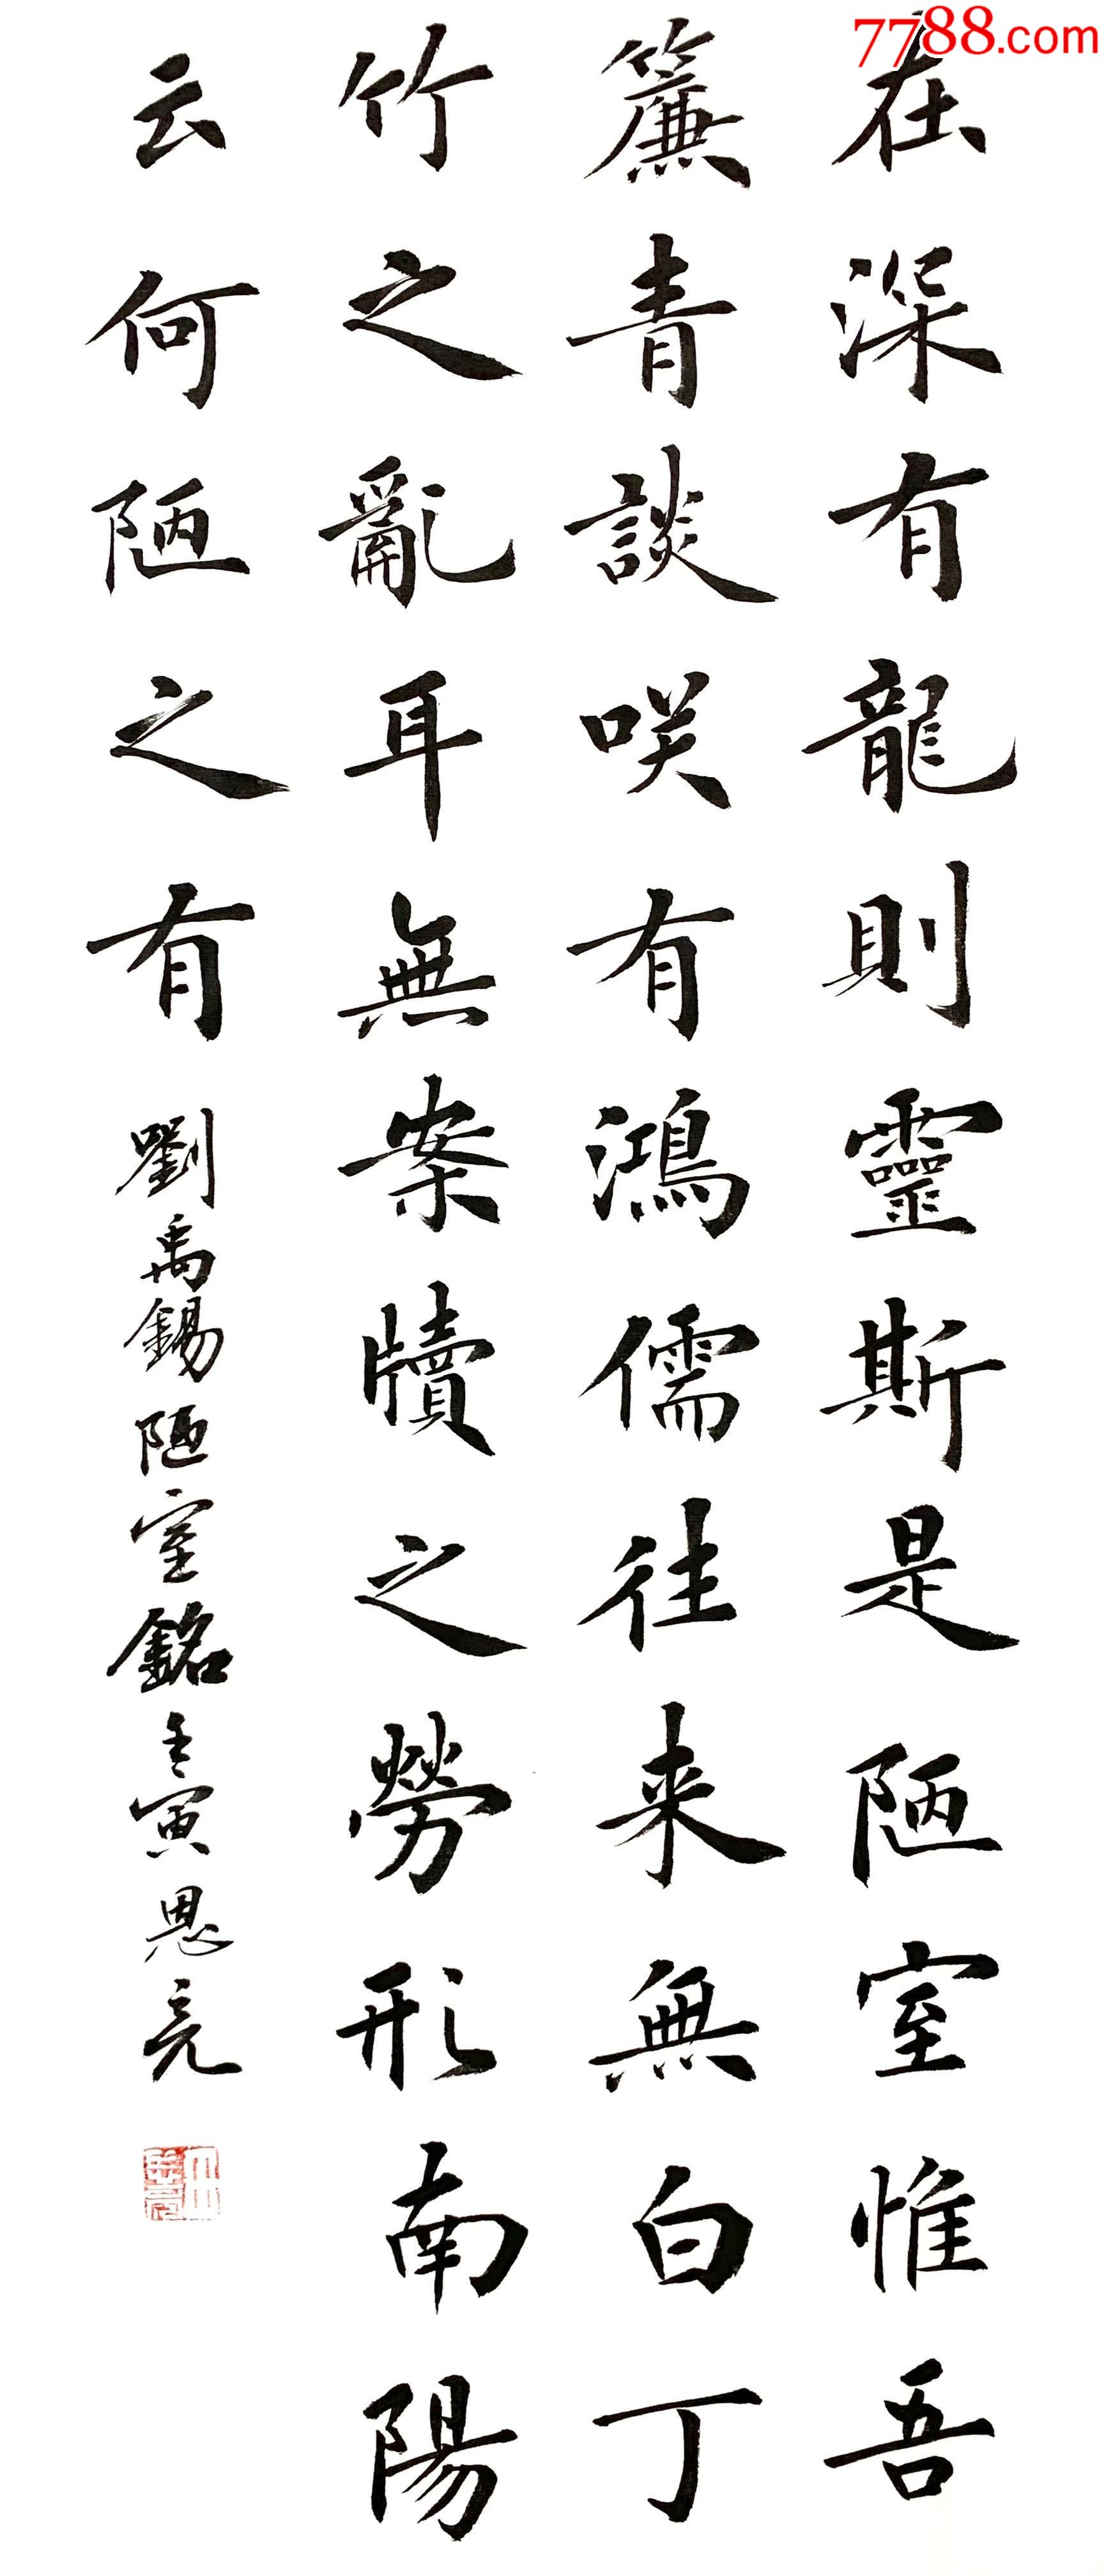 7788.com
在深有龍則靈斯是陋室惟吾
簾青談咲有鴻儒往来無白丁
竹之亂耳無案牘之勞形南陽
云何陋之有 劉禹錫陋室銘 壬寅恩亮